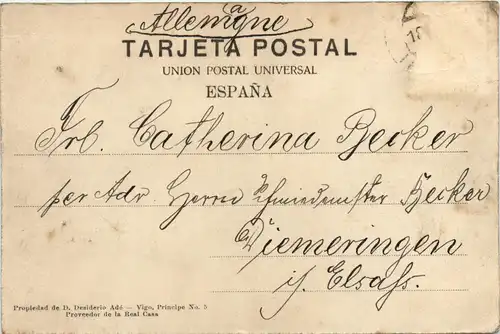 Allemagne
TARJETA POSTAL
UNION POSTAL UNIVERSAL
ESPAÑA
Frl. Catherina Becker
per Adr. Herrn Schmiedemster Becker
Diemeringen
i/ Elsaß.
Propiedad de D. Desiderio Adé — Vigo, Príncipe No. 5
Proveedor de la Real Casa